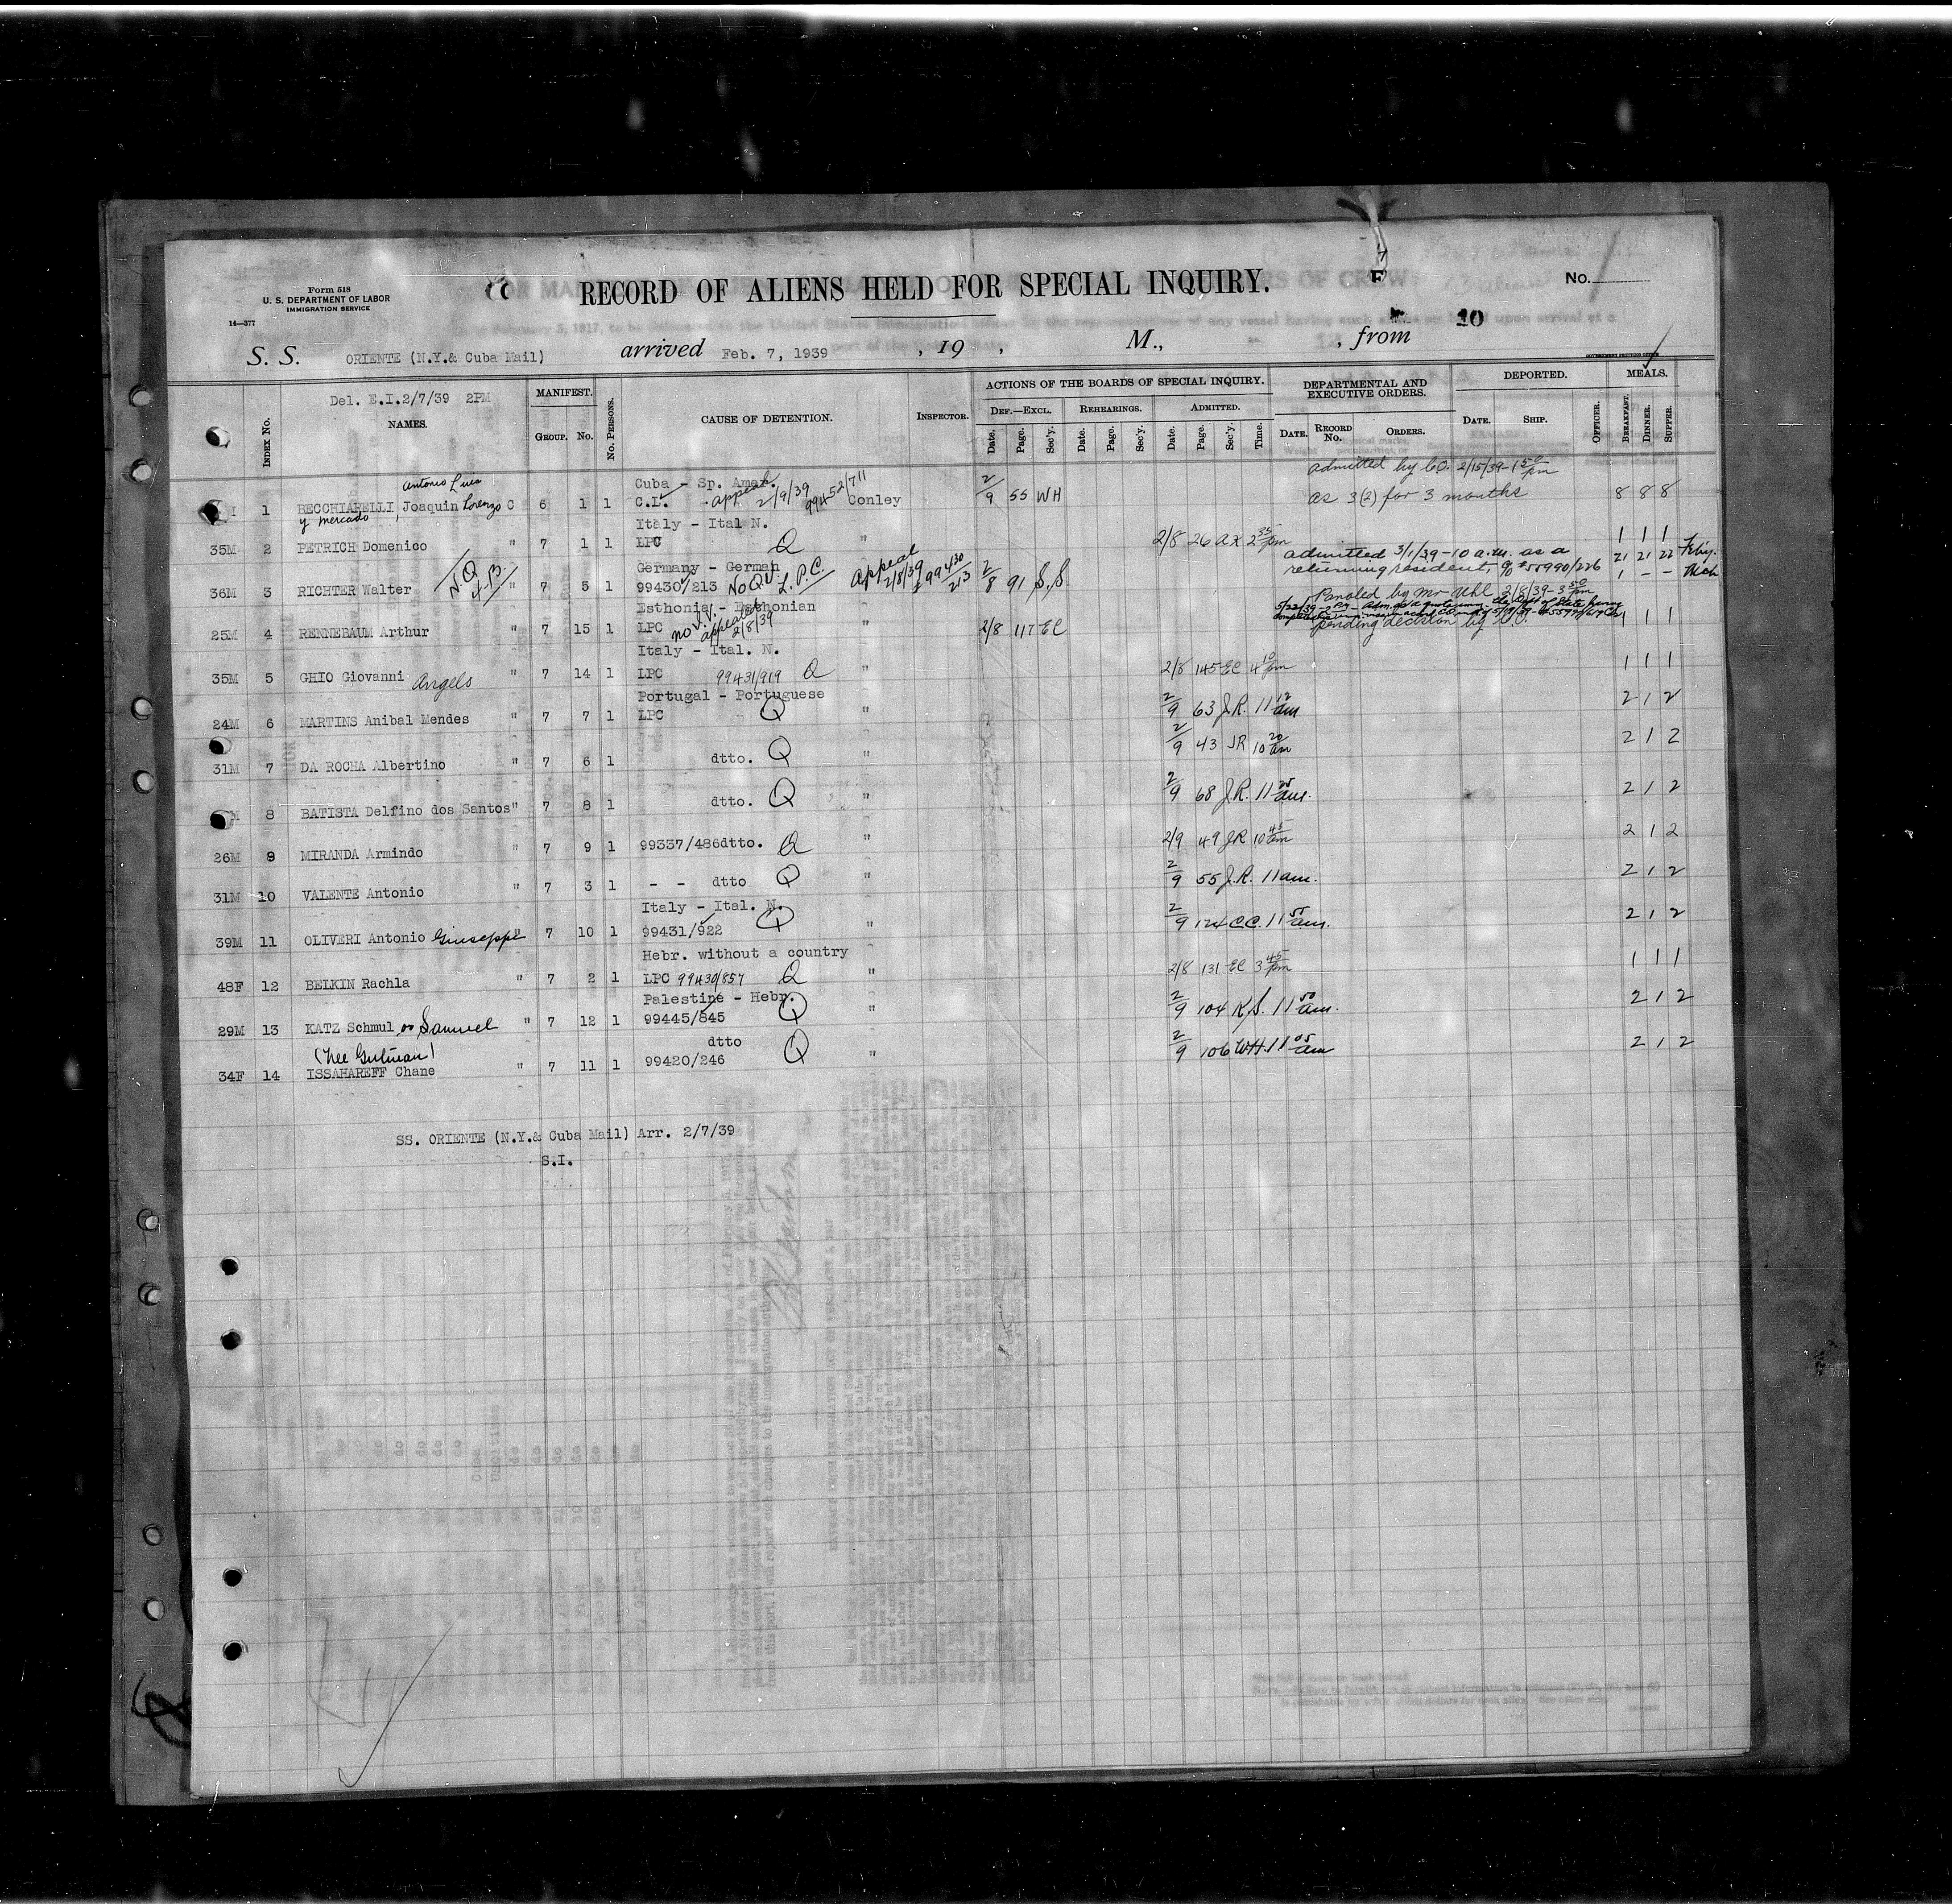 Form 518
U. S. DEPARTMENT OF LABOR
IMMIGRATION SERVICE
14—377
RECORD OF ALIENS HELD FOR SPECIAL INQUIRY.
F
No.
10
S. S. ORIENTE (N.Y.& Cuba Mail) arrived Feb. 7, 1939 , 19 , M., , from
GOVERNMENT PRINTING OFFICE
INDEX No. Del. E.I.2/7/39 2PM NAMES. MANIFEST. GROUP. No. No. PERSONS. CAUSE OF DETENTION. INSPECTOR. ACTIONS OF THE BOARDS OF SPECIAL INQUIRY. DEF.—EXCL. Date. Page. Sec'y. REHEARINGS. Date. Page. Sec'y. ADMITTED. Date. Page. Sec'y. Time. DEPARTMENTAL AND EXECUTIVE ORDERS. DATE. RECORD No. ORDERS. DEPORTED. DATE. SHIP. OFFICER. MEALS. BREAKFAST. DINNER. SUPPER.
Antonio Luis Cuba - Sp. Amer. admitted by CO. 2/15/39-1 50 pm
1 BECCHIARELLI, Joaquin Lorenzo C 6 1 1 C.I. appeal 2/9/39 99452/711 Conley 2/9 55 WH as 3(2) for 3 months 8 8 8
y mercado Italy - Ital N.
35M 2 PETRICH Domenico " 7 1 1 LPC Q " 2/8 26 AX 2 35 pm 1 1 1
Germany - German admitted 3/1/39-10 a.m. as a 21 21 22 Feby.
36M 3 RICHTER Walter " 7 5 1 99430/213 No QV. L.P.C. Appeal 2/8/39 99430/213 2/8 91 S.S. returning resident, 55990/226 1 - - Mch
Esthonia - Esthonian Paroled by Mr Uhl 2/8/39-3 50 pm
25M 4 RENNEBAUM Arthur " 7 15 1 LPC no I.V. appealed 2/8/39 " 2/8 117 EC pending decision by C.O. 1 1 1
Italy - Ital. N.
35M 5 GHIO Giovanni Angelo " 7 14 1 LPC 99431/919 Q " 2/8 145 EC 4 10 pm 1 1 1
Portugal - Portuguese
24M 6 MARTINS Anibal Mendes " 7 7 1 LPC Q " 2/9 63 J.R. 11 12 am 2 1 2
31M 7 DA ROCHA Albertino " 7 6 1 dtto. Q " 2/9 43 JR 10 20 am 2 1 2
M 8 BATISTA Delfino dos Santos" 7 8 1 dtto. Q " 2/9 68 J.R. 11 25 am. 2 1 2
26M 9 MIRANDA Armindo " 7 9 1 99337/486dtto. Q " 2/9 49 JR 10 45 am 2 1 2
31M 10 VALENTE Antonio " 7 3 1 - - dtto Q " 2/9 55 J.R. 11 am. 2 1 2
Italy - Ital. N.
39M 11 OLIVERI Antonio Giuseppe " 7 10 1 99431/922 Q " 2/9 124 C.C. 11 55 am. 2 1 2
Hebr. without a country
48F 12 BELKIN Rachla " 7 2 1 LPC 99430/857 Q " 2/8 131 EC 3 45 pm 1 1 1
Palestine - Hebr.
29M 13 KATZ Schmul or Samuel " 7 12 1 99445/845 Q " 2/9 104 K.S. 11 50 am. 2 1 2
(nee Gutman) dtto
34F 14 ISSAHAREFF Chane " 7 11 1 99420/246 Q " 2/9 106 WH. 11 05 am 2 1 2
SS. ORIENTE (N.Y.& Cuba Mail) Arr. 2/7/39
S.I.